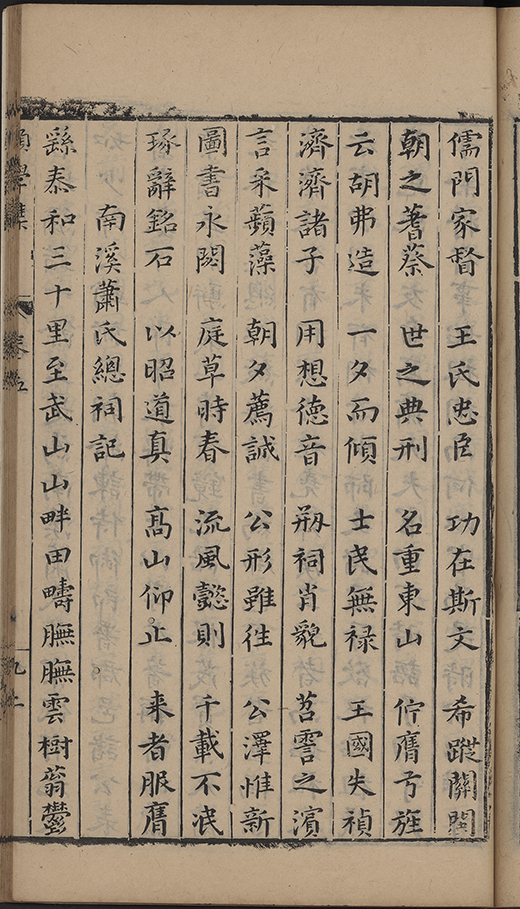 儒門家督　王氏忠臣　功在斯文　希蹤關閩
朝之蓍蔡　世之典刑　名重東山　佇膺弓旌
云胡弗造　一夕而傾　士民無禄　王國失禎
濟濟諸子　用想德音　刱祠肖貌　苕霅之濱
言采蘋藻　朝夕薦誠　公形雖徃　公澤惟新
圖書永閟　庭草時春　流風懿則　千載不泯
琢辭銘石　以昭道真　髙山仰止　来者服膺
南溪蕭氏總祠記
繇泰和三十里至武山山畔田疇膴膴雲樹蓊鬱
學集
卷五